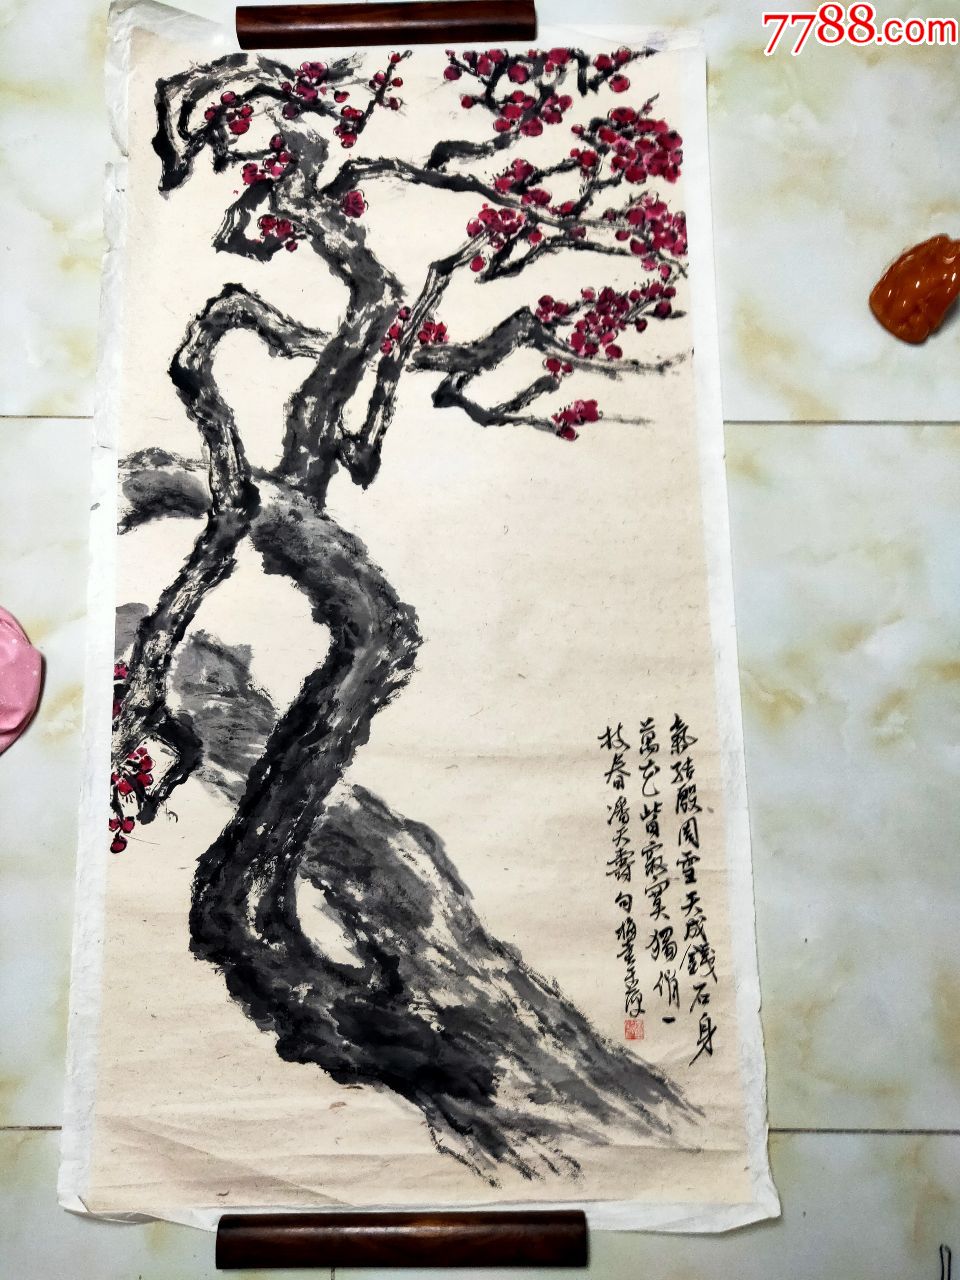 7788.com
氣結殷周雪天成鐵石身
萬花皆寂寞獨俏一
枝春潘天壽句